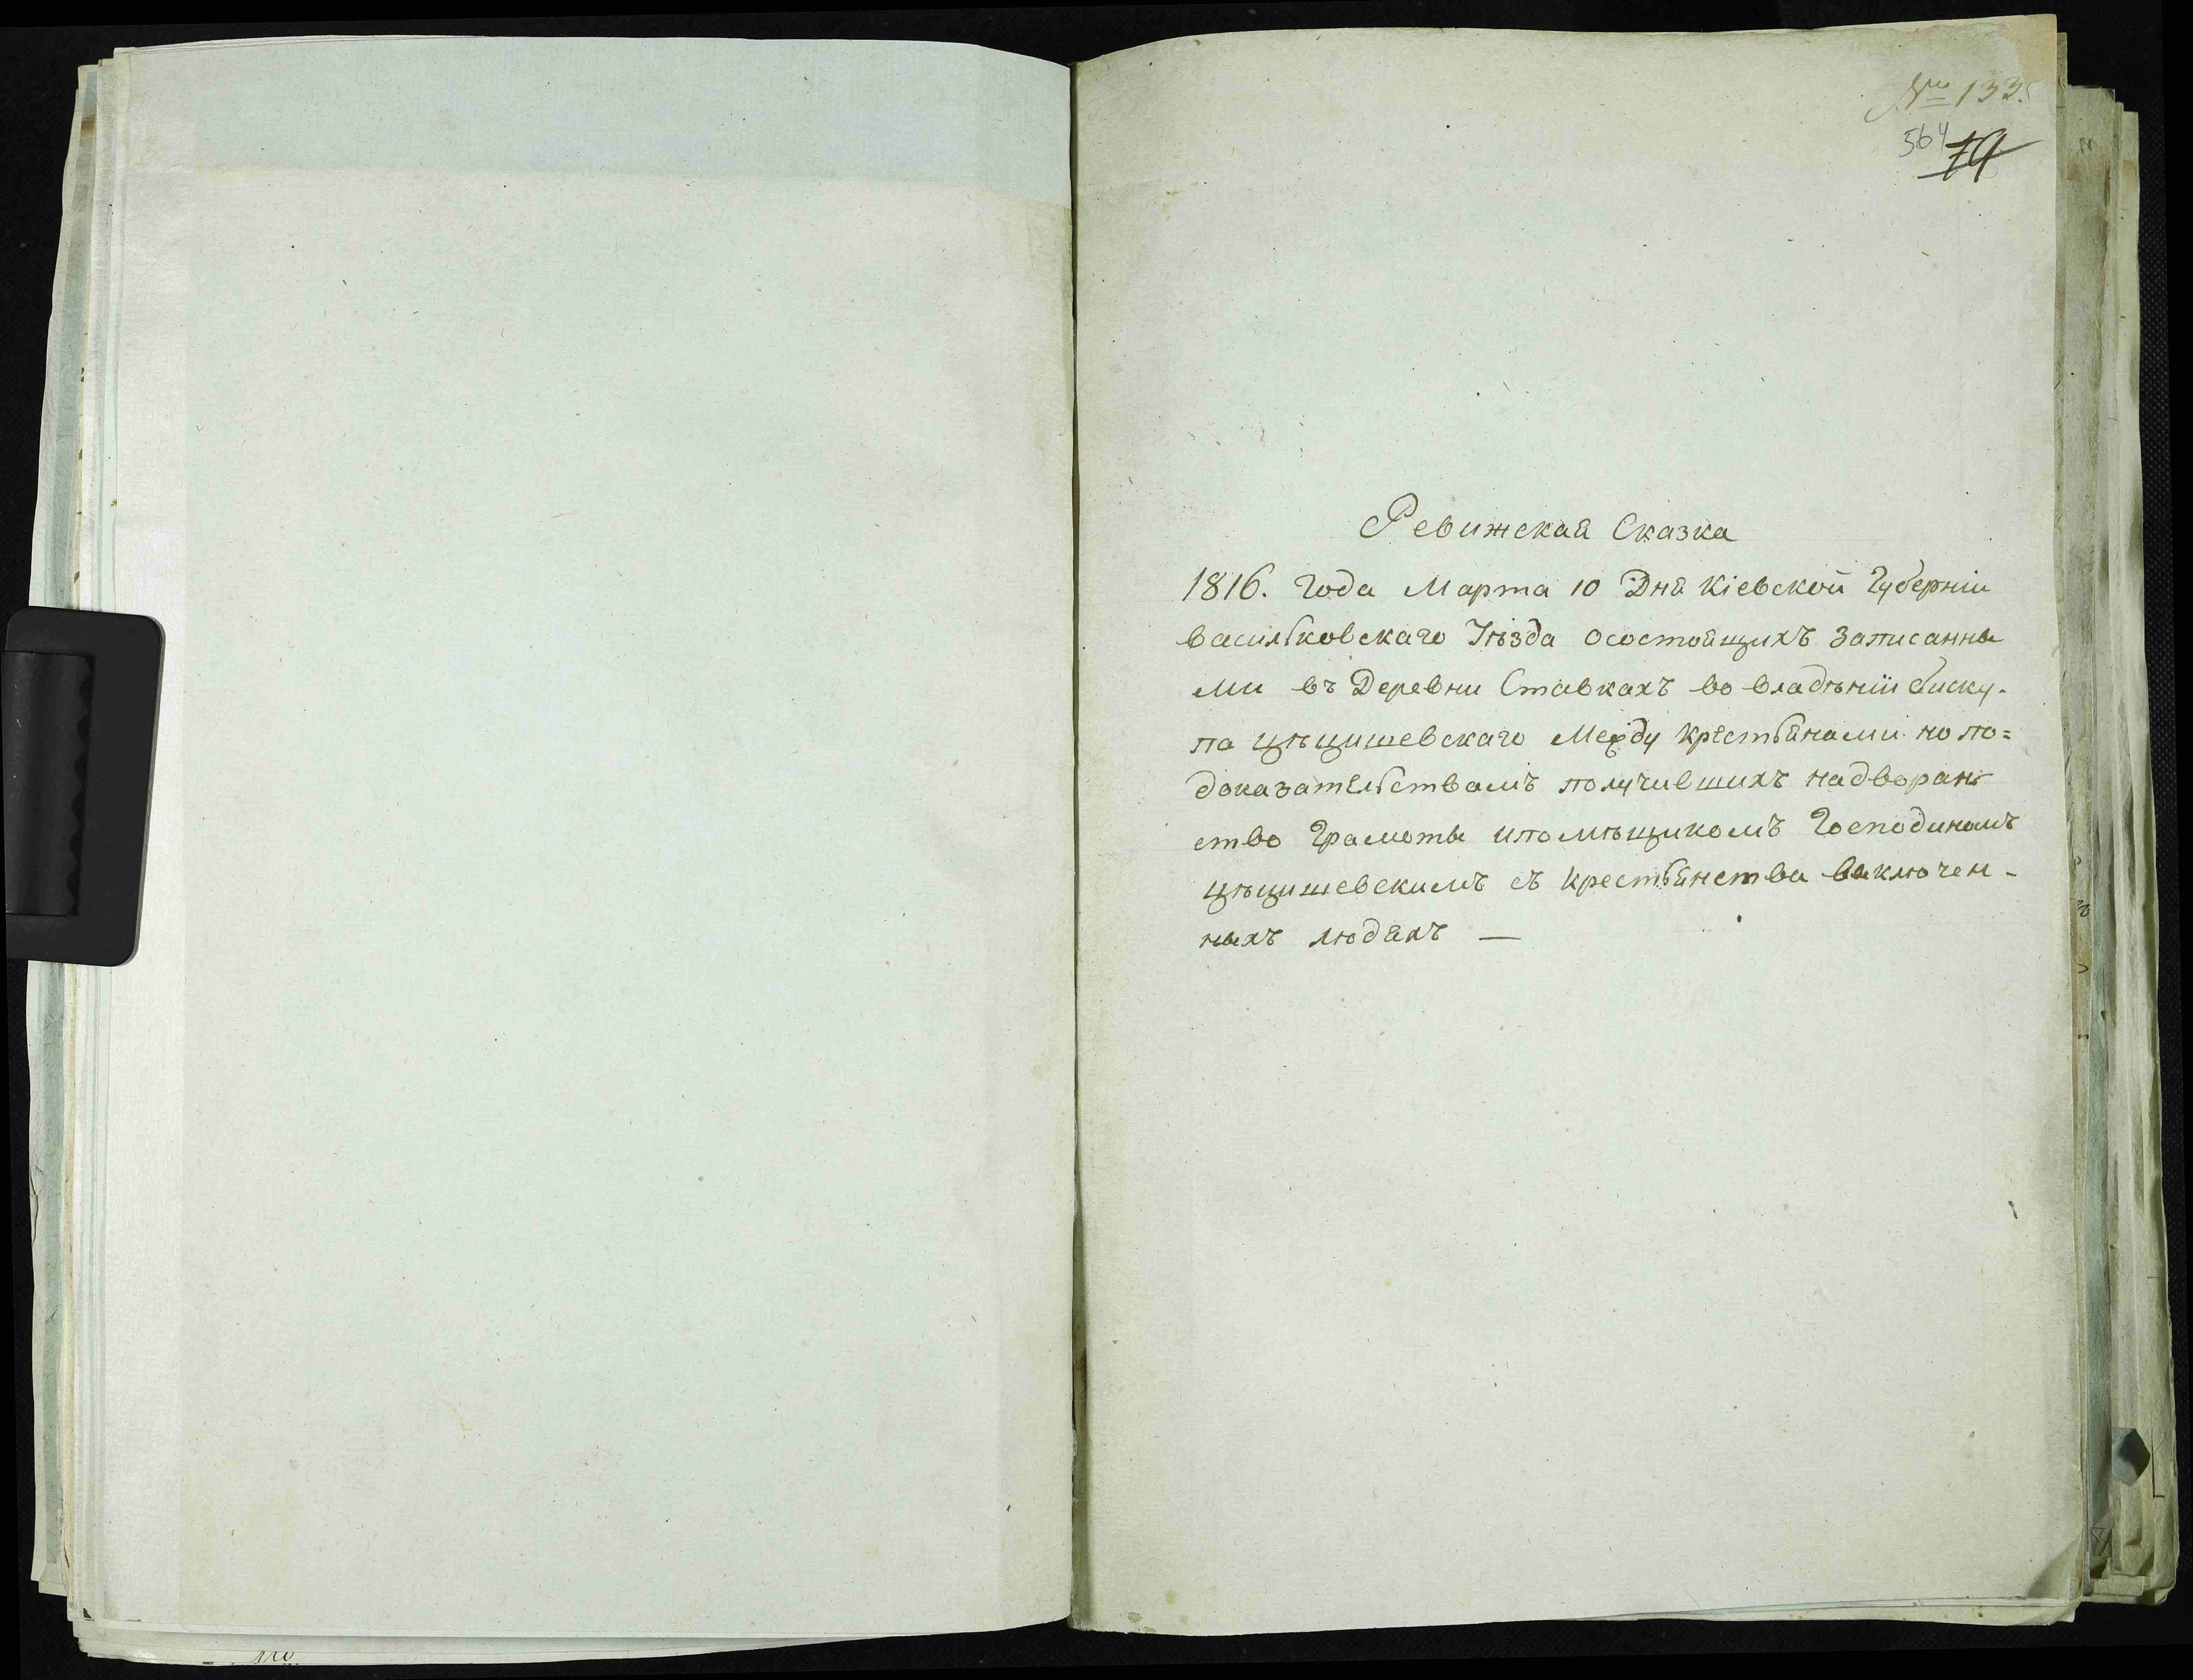 № 133.
564 79
Ревижская Сказка
1816. года Марта 10 Дня Кіевской Губерніи
васильковскаго Уѣзда осостоящихъ записанны
ми въ Деревни Ставкахъ во владѣніи биску-
па цѣцишевскаго Между крестьянами но по=
доказательствамъ получившихъ надворян
ство Грамоты ипомѣщикомъ Господиномъ
цѣцишевскимъ съ крестьянства выключен-
ныхъ людяхъ —